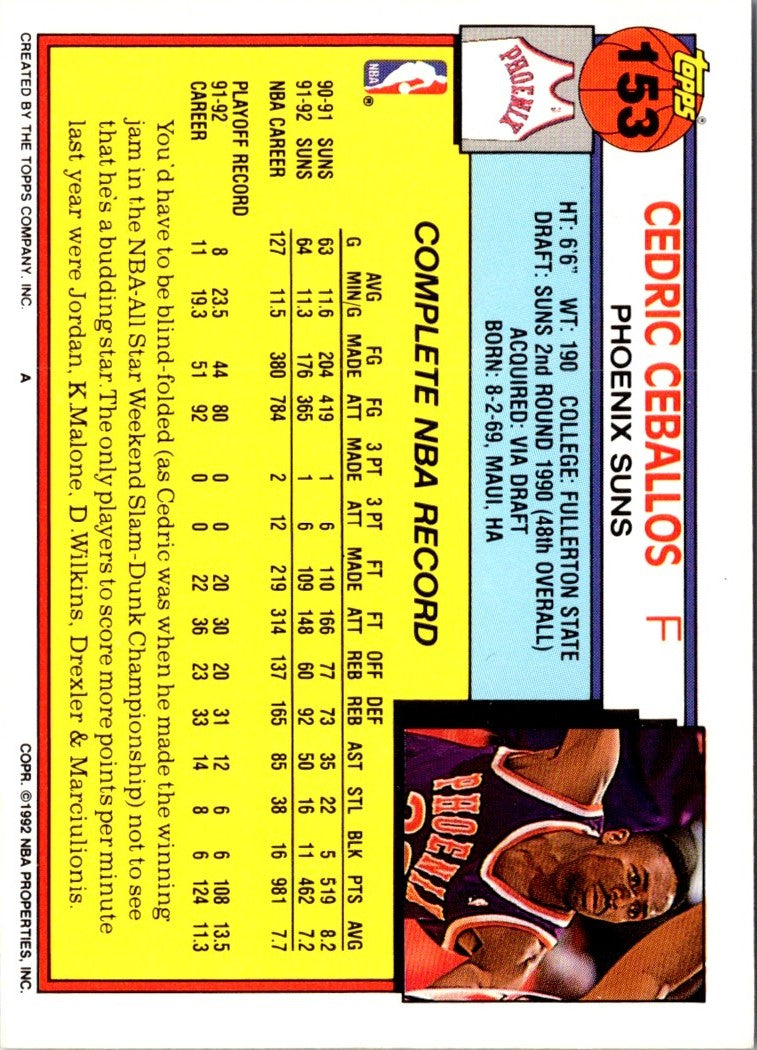 topps®
153
CEDRIC CEBALLOS F
PHOENIX SUNS
PHOENIX
HT: 6'6" WT: 190 COLLEGE: FULLERTON STATE
DRAFT: SUNS 2nd ROUND 1990 (48th OVERALL)
ACQUIRED: VIA DRAFT
BORN: 8-2-69, MAUI, HA
PHOENIX
NBA ®
COMPLETE NBA RECORD
AVG FG FG 3 PT 3 PT FT FT OFF DEF
G MIN/G MADE ATT MADE ATT MADE ATT REB REB AST STL BLK PTS AVG
90-91 SUNS 63 11.6 204 419 1 6 110 166 77 73 35 22 5 519 8.2
91-92 SUNS 64 11.3 176 365 1 6 109 148 60 92 50 16 11 462 7.2
NBA CAREER 127 11.5 380 784 2 12 219 314 137 165 85 38 16 981 7.7
PLAYOFF RECORD
91-92 8 23.5 44 80 0 0 20 30 20 31 12 6 6 108 13.5
CAREER 11 19.3 51 92 0 0 22 36 23 33 14 8 6 124 11.3
You'd have to be blind-folded (as Cedric was when he made the winning
jam in the NBA-All Star Weekend Slam-Dunk Championship) not to see
that he's a budding star. The only players to score more points per minute
last year were Jordan, K.Malone, D.Wilkins, Drexler & Marciulionis.
CREATED BY THE TOPPS COMPANY, INC. A COPR. ©1992 NBA PROPERTIES, INC.